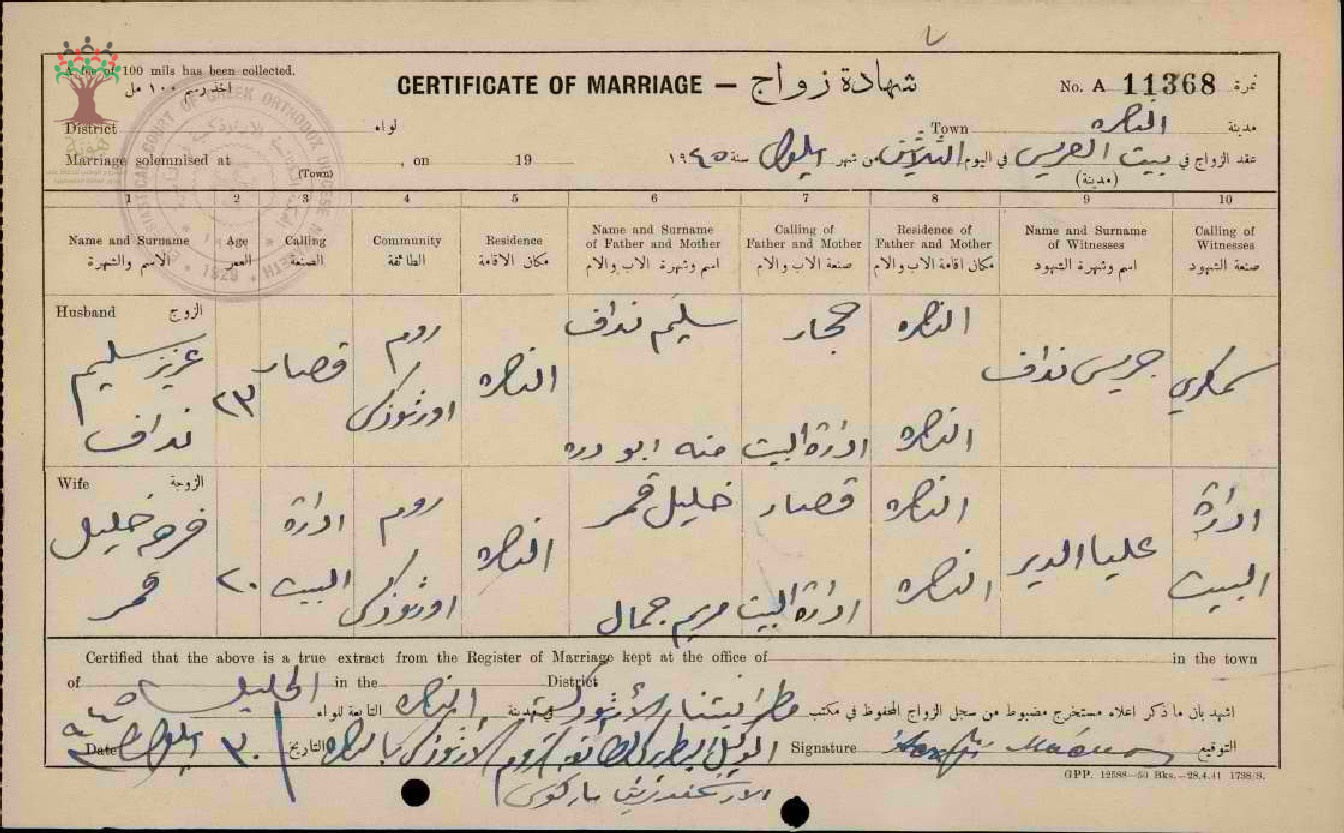 A fee of 100 mils has been collected.
اخذ رسم ١٠٠ مل
CERTIFICATE OF MARRIAGE — شهادة زواج
No. A 11368 نمرة
District لواء
Town الناصره مدينة
Marriage solemnised at , on 19
(Town)
عقد الزواج في بيت العريس في اليوم الثلاثين من شهر ايلول سنة ١٩٤٥
(مدينة)
1 2 3 4 5 6 7 8 9 10
Name and Surname الاسم والشهرة
Age العمر
Calling الصنعة
Community الطائفة
Residence مكان الاقامة
Name and Surname of Father and Mother اسم وشهرة الاب والام
Calling of Father and Mother صنعة الاب والام
Residence of Father and Mother مكان اقامة الاب والام
Name and Surname of Witnesses اسم وشهرة الشهود
Calling of Witnesses صنعة الشهود
Husband الزوج
عزيز سليم نداف
٢٣
قصار
روم اورثوذكس
الناصره
سليم نداف
حجار
الناصره
جريس نداف
سمكري
منه ابو دره
ادارة البيت
الناصره
Wife الزوجة
فرحه خليل قمر
٢٠
ادارة البيت
روم اورثوذكس
الناصره
خليل قمر
قصار
الناصره
عليا الدير
ادارة البيت
مريم جمال
ادارة البيت
الناصره
Certified that the above is a true extract from the Register of Marriage kept at the office of in the town
of in the District
اشهد بان ما ذكر اعلاه مستخرج مضبوط من سجل الزواج المحفوظ في مكتب
في مدينة الناصره التابعة للواء الجليل
Date ٣٠ ايلول التاريخ
Signature التوقيع
GPP. 12588—50 Bks.—28.4.41 1798/S.